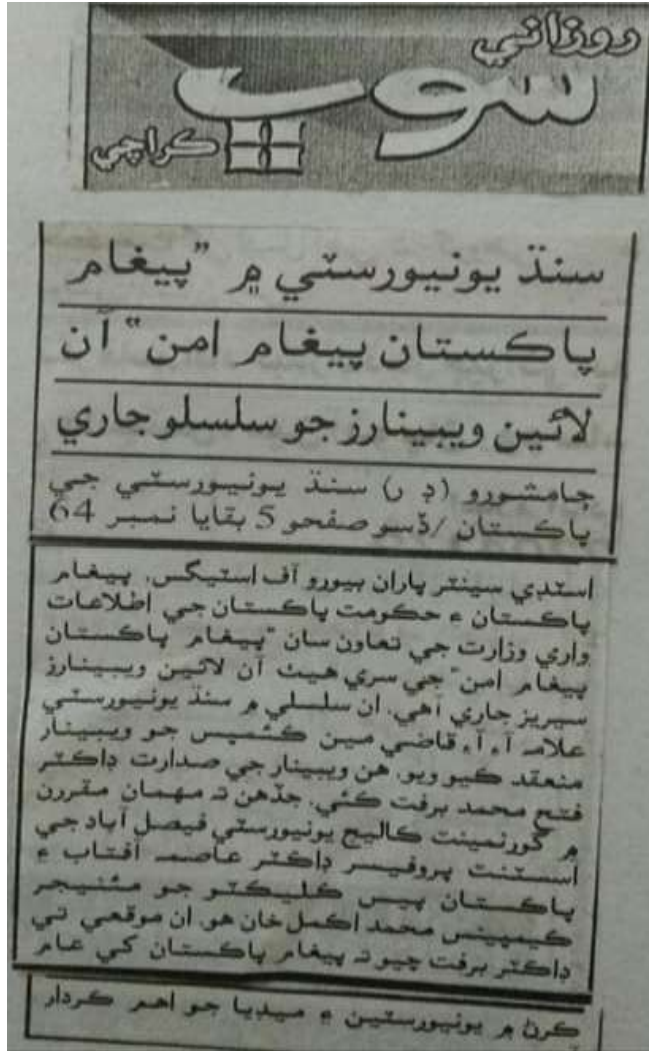 روزاني
سوڀ
ڪراچي
سنڌ يونيورسٽي ۾ "پيغام
پاڪستان پيغام امن" آن
لائين ويبينارز جو سلسلو جاري
ڄامشورو (پ ر) سنڌ يونيورسٽي جي
پاڪستان /ڏسو صفحو 5 بقايا نمبر 64
اسٽڊي سينٽر پاران بيورو آف اسٽيگس، پيغام
پاڪستان ۽ حڪومت پاڪستان جي اطلاعات
واري وزارت جي تعاون سان "پيغام پاڪستان
پيغام امن" جي سري هيٺ آن لائين ويبينارز
سيريز جاري آهي. ان سلسلي ۾ سنڌ يونيورسٽي
علامه آءِ آءِ قاضي مين ڪئمپس جو ويبينار
منعقد ڪيو ويو. هن ويبينار جي صدارت ڊاڪٽر
فتح محمد برفت ڪئي، جڏهن ته مهمان مقررن
۾ گورنمينٽ ڪاليج يونيورسٽي فيصل آباد جي
اسسٽنٽ پروفيسر ڊاڪٽر عاصمه آفتاب ۽
پاڪستان پيس ڪليڪٽو جو مئنيجر
ڪيمپينس محمد اڪمل خان هو. ان موقعي تي
ڊاڪٽر برفت چيو ته پيغام پاڪستان کي عام
ڪرڻ ۾ يونيورسٽين ۽ ميڊيا جو اهم ڪردار